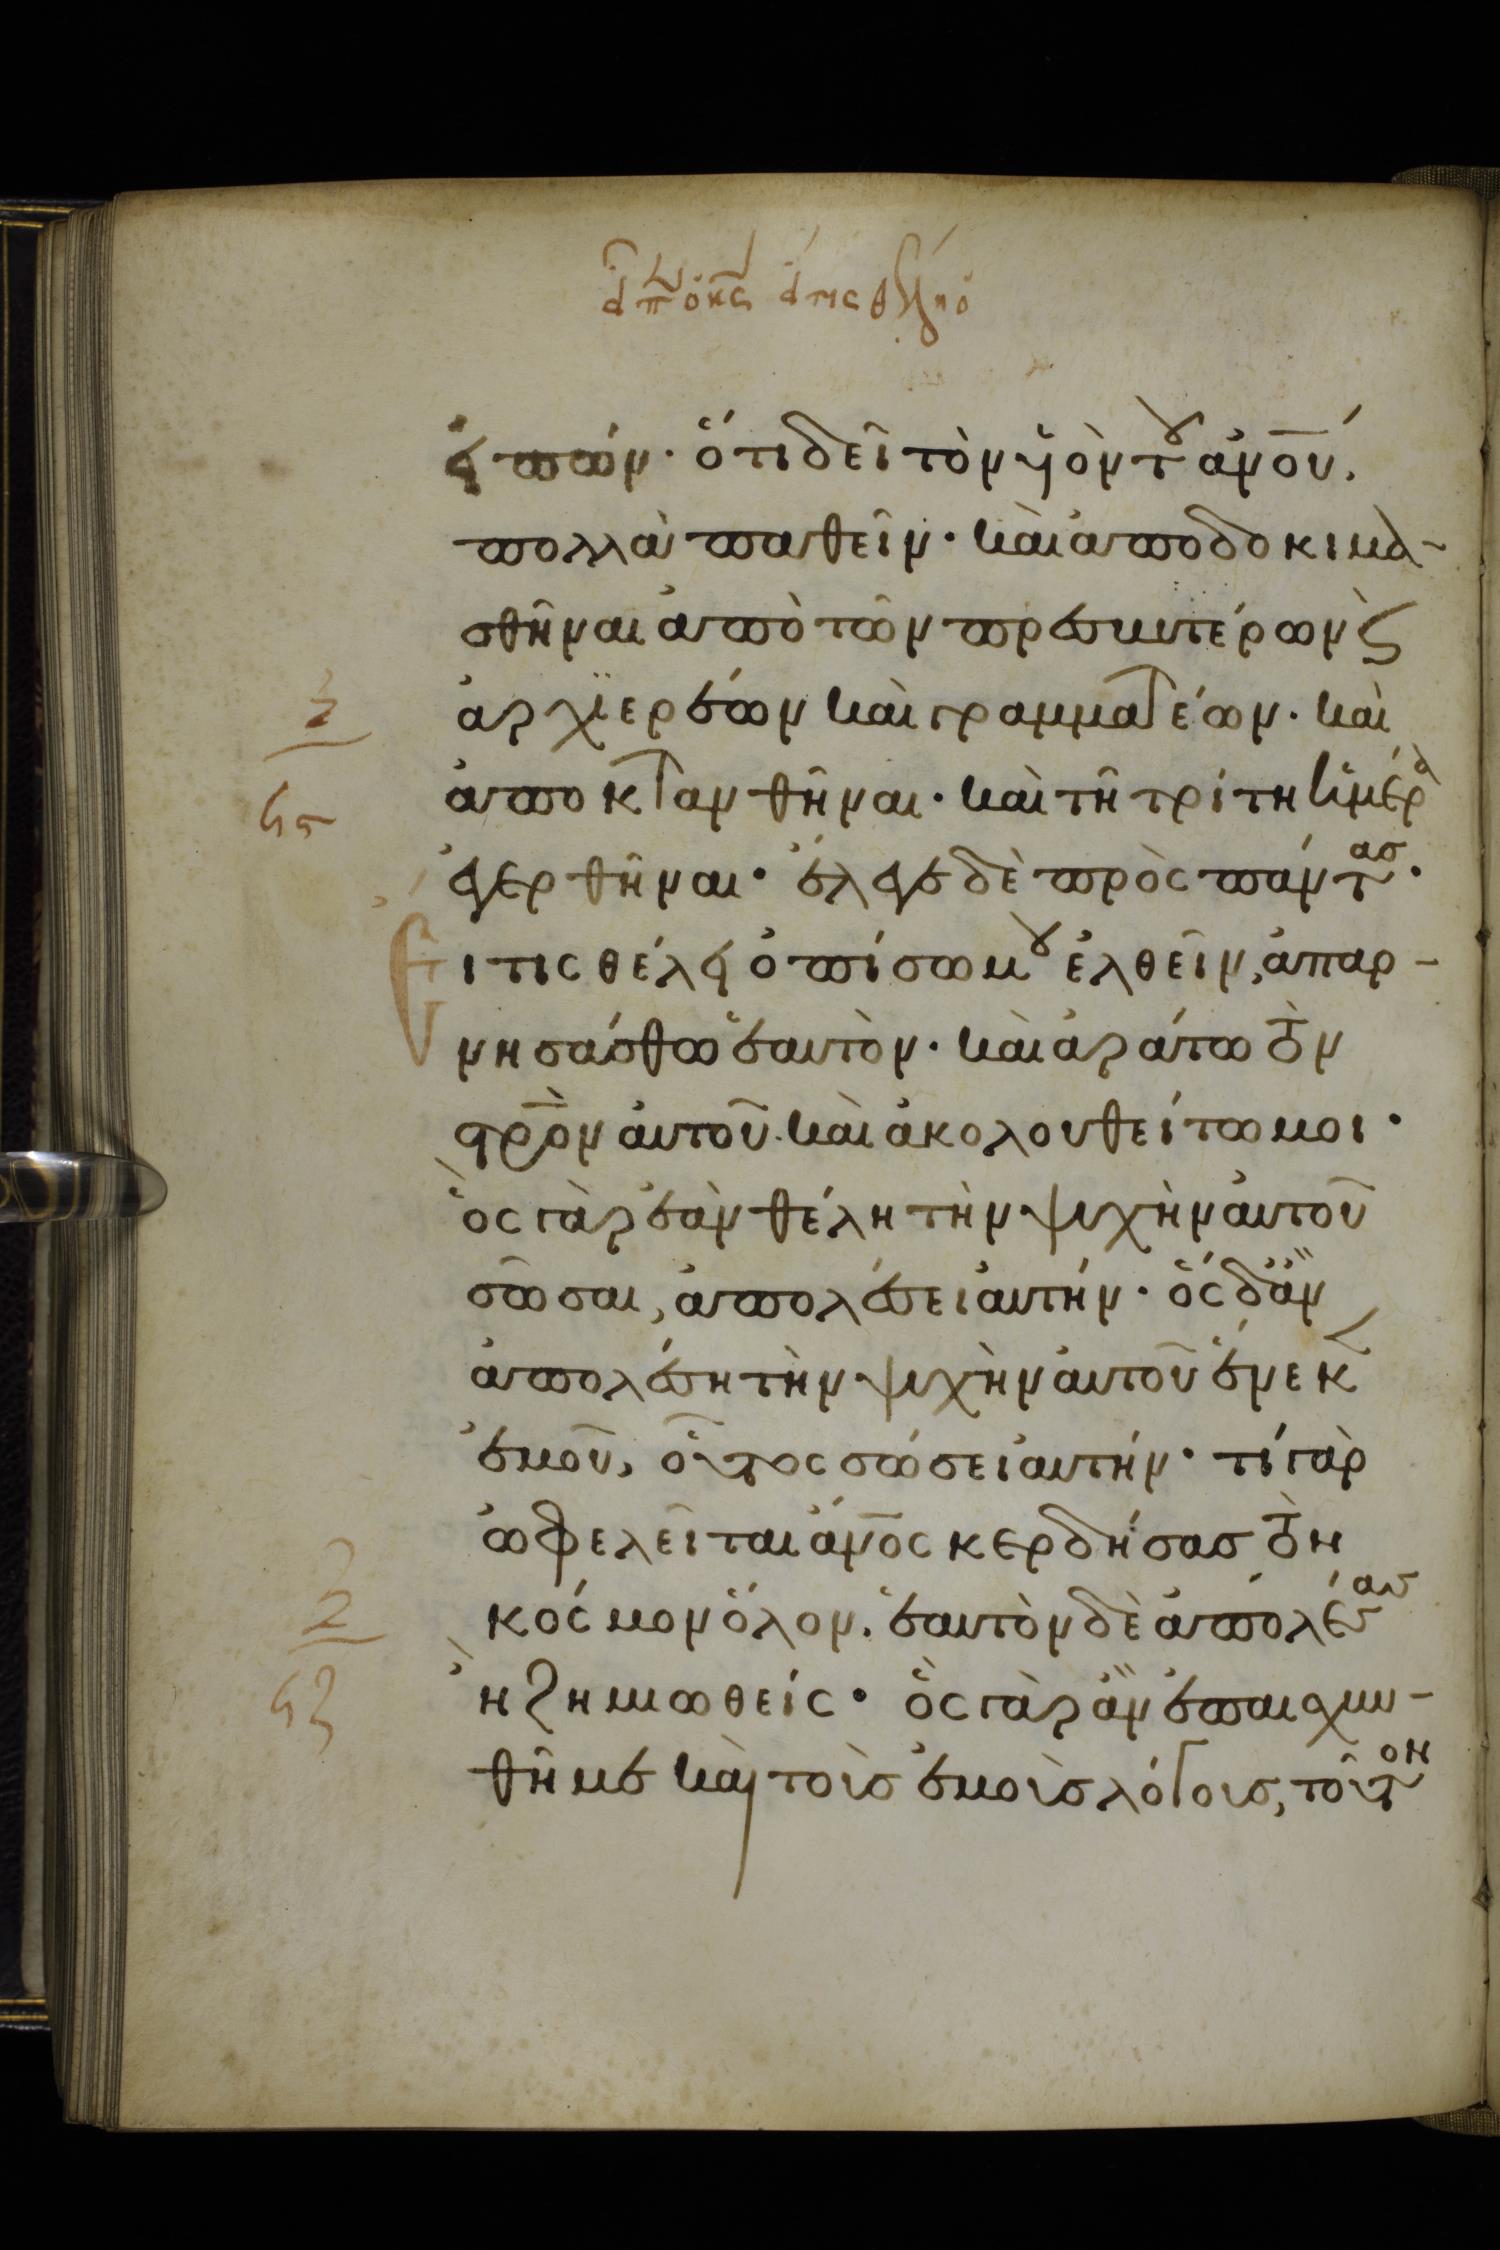 εἰπὼν· ὅτι δεῖ τὸν υἱὸν τοῦ ἀν̅ου,
πολλὰ παθεῖν· καὶ ἀποδοκιμα-
σθῆναι ἀπὸ τῶν πρεσβυτέρων ϗ
ἀρχϊερέων καὶ γραμματέων· καὶ
ἀποκτανθῆναι· καὶ τῇ τρίτη ἡμέρα
ἐγερθῆναι· ἔλεγε δὲ πρὸς πάντας·
Εἴ τις θέλει ὀπίσω μου ἐλθεῖν, ἀπαρ-
νησάσθω ἑαυτὸν· καὶ ἀράτω τὸν
στ̅ρὸν αὐτοῦ· καὶ ἀκολουθείτω μοι·
ὃς γὰρ ἐὰν θέλη τὴν ψυχὴν αὐτοῦ
σῶσαι, ἀπολέσει αὐτήν· ὅς δ' ἂν
ἀπολέση τὴν ψυχὴν αὐτοῦ ἕνεκεν
ἐμοῦ, οὗτος σώσει αὐτήν· τί γὰρ
ὠφελεῖται ἄν̅ος κερδήσας τὸν
κόσμον ὅλον. ἑαυτὸν δὲ ἀπολέσας
ἢ ζημιωθείς· ὃς γὰρ ἂν ἐπαισχυν-
θῆ με καὶ τοὺς ἐμοὺς λόγους, τοῦτον